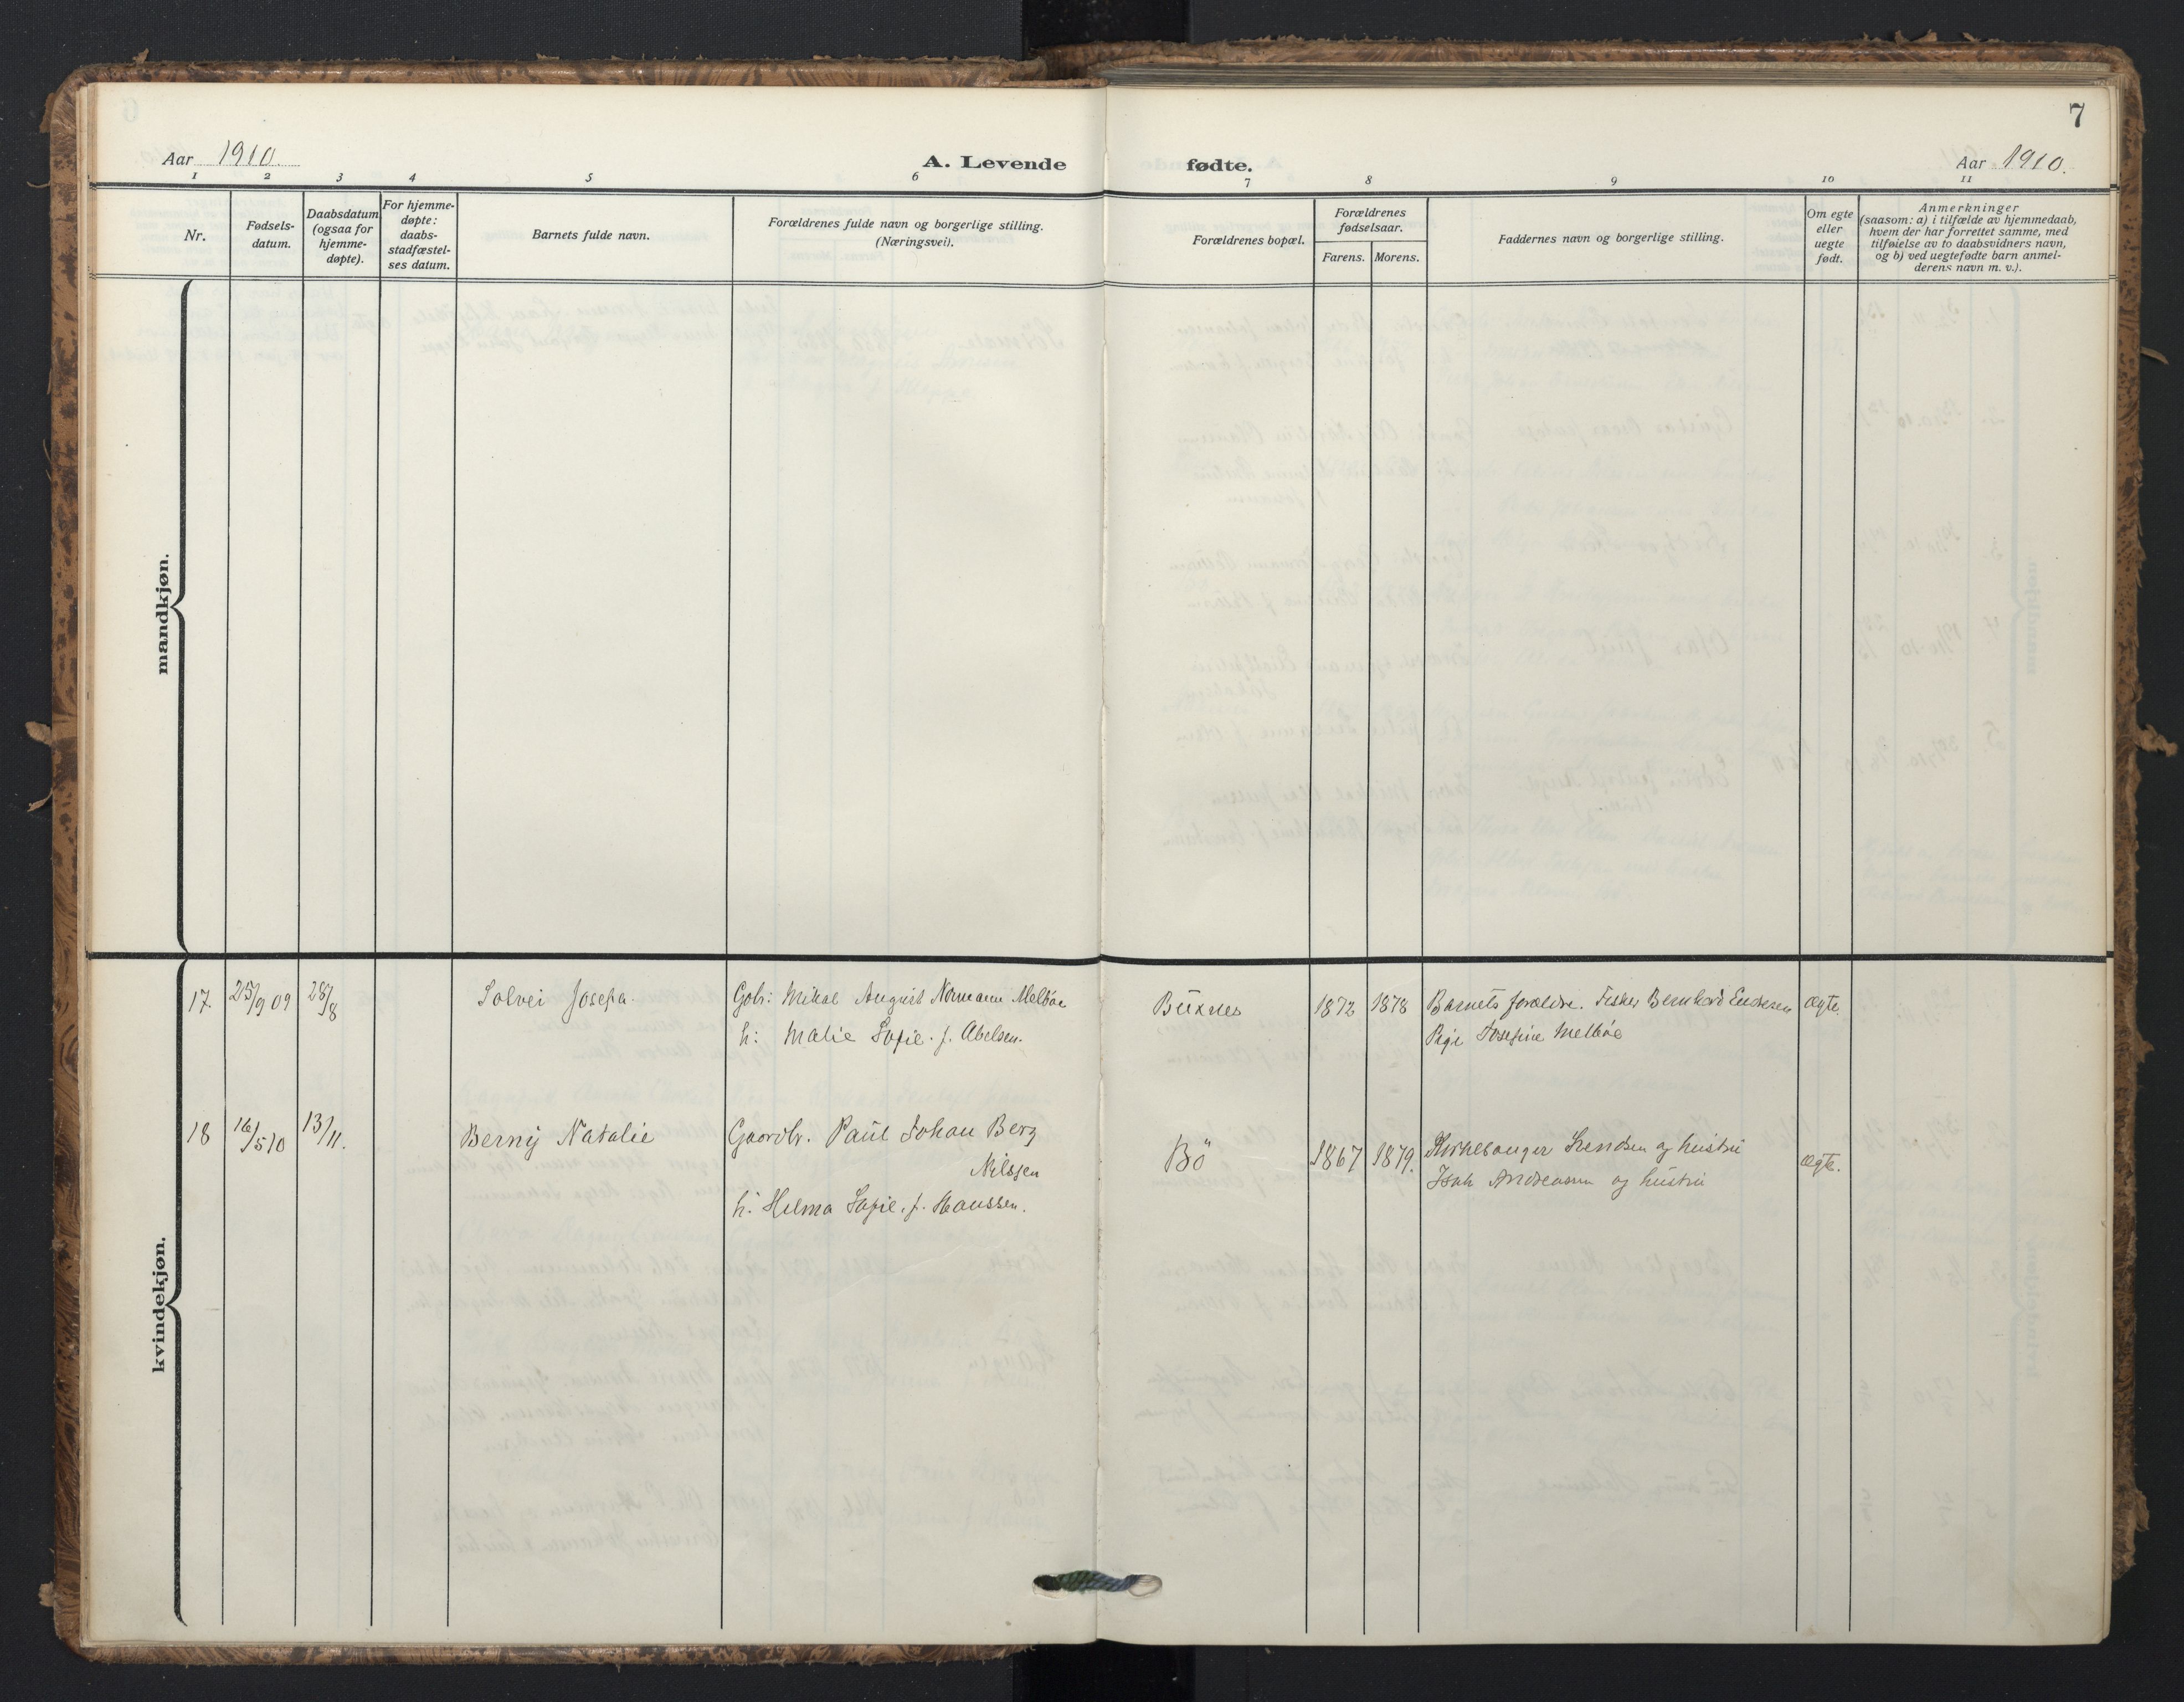 7
Aar 1910.
A. Levende
fødte.
Aar 1910.
1 2 3 4 5 6 7 8 9 10 11
Nr.
Fødsels-
datum.
Daabsdatum
(ogsaa for
hjemme-
døpte).
For hjemme-
døpte:
daabs-
stadfæstel-
ses datum.
Barnets fulde navn.
Forældrenes fulde navn og borgerlige stilling.
(Næringsvei).
Forældrenes bopæl.
Forældrenes
fødselsaar.
Farens. Morens.
Faddernes navn og borgerlige stilling.
Om egte
eller
uegte
født.
Anmerkninger
(saasom: a) i tilfælde av hjemmedaab,
hvem der har forrettet samme, med
tilføielse av to daabsvidners navn,
og b) ved uegtefødte barn anmel-
derens navn m. v.).
mandkjøn.
kvindekjøn.
17. 25/9 09 28/8 Solvei Josefa. Gbr: Mikal August Normann Melbøe Buxnes 1872 1878 Barnets forældre. Fisker Bernhard Endresen ægte.
h: Malie Sofie. f. Abelsen. Pige Josefine Melbøe
18 16/5 10 13/11. Berny Natalie Gaardbr. Paul Johan Berg Bö 1867 1879. Kirkesanger Svendsen og hustru ægte.
Nilssen Isak Andreassen og hustru
h. Helma Sofie. f. Hanssen.